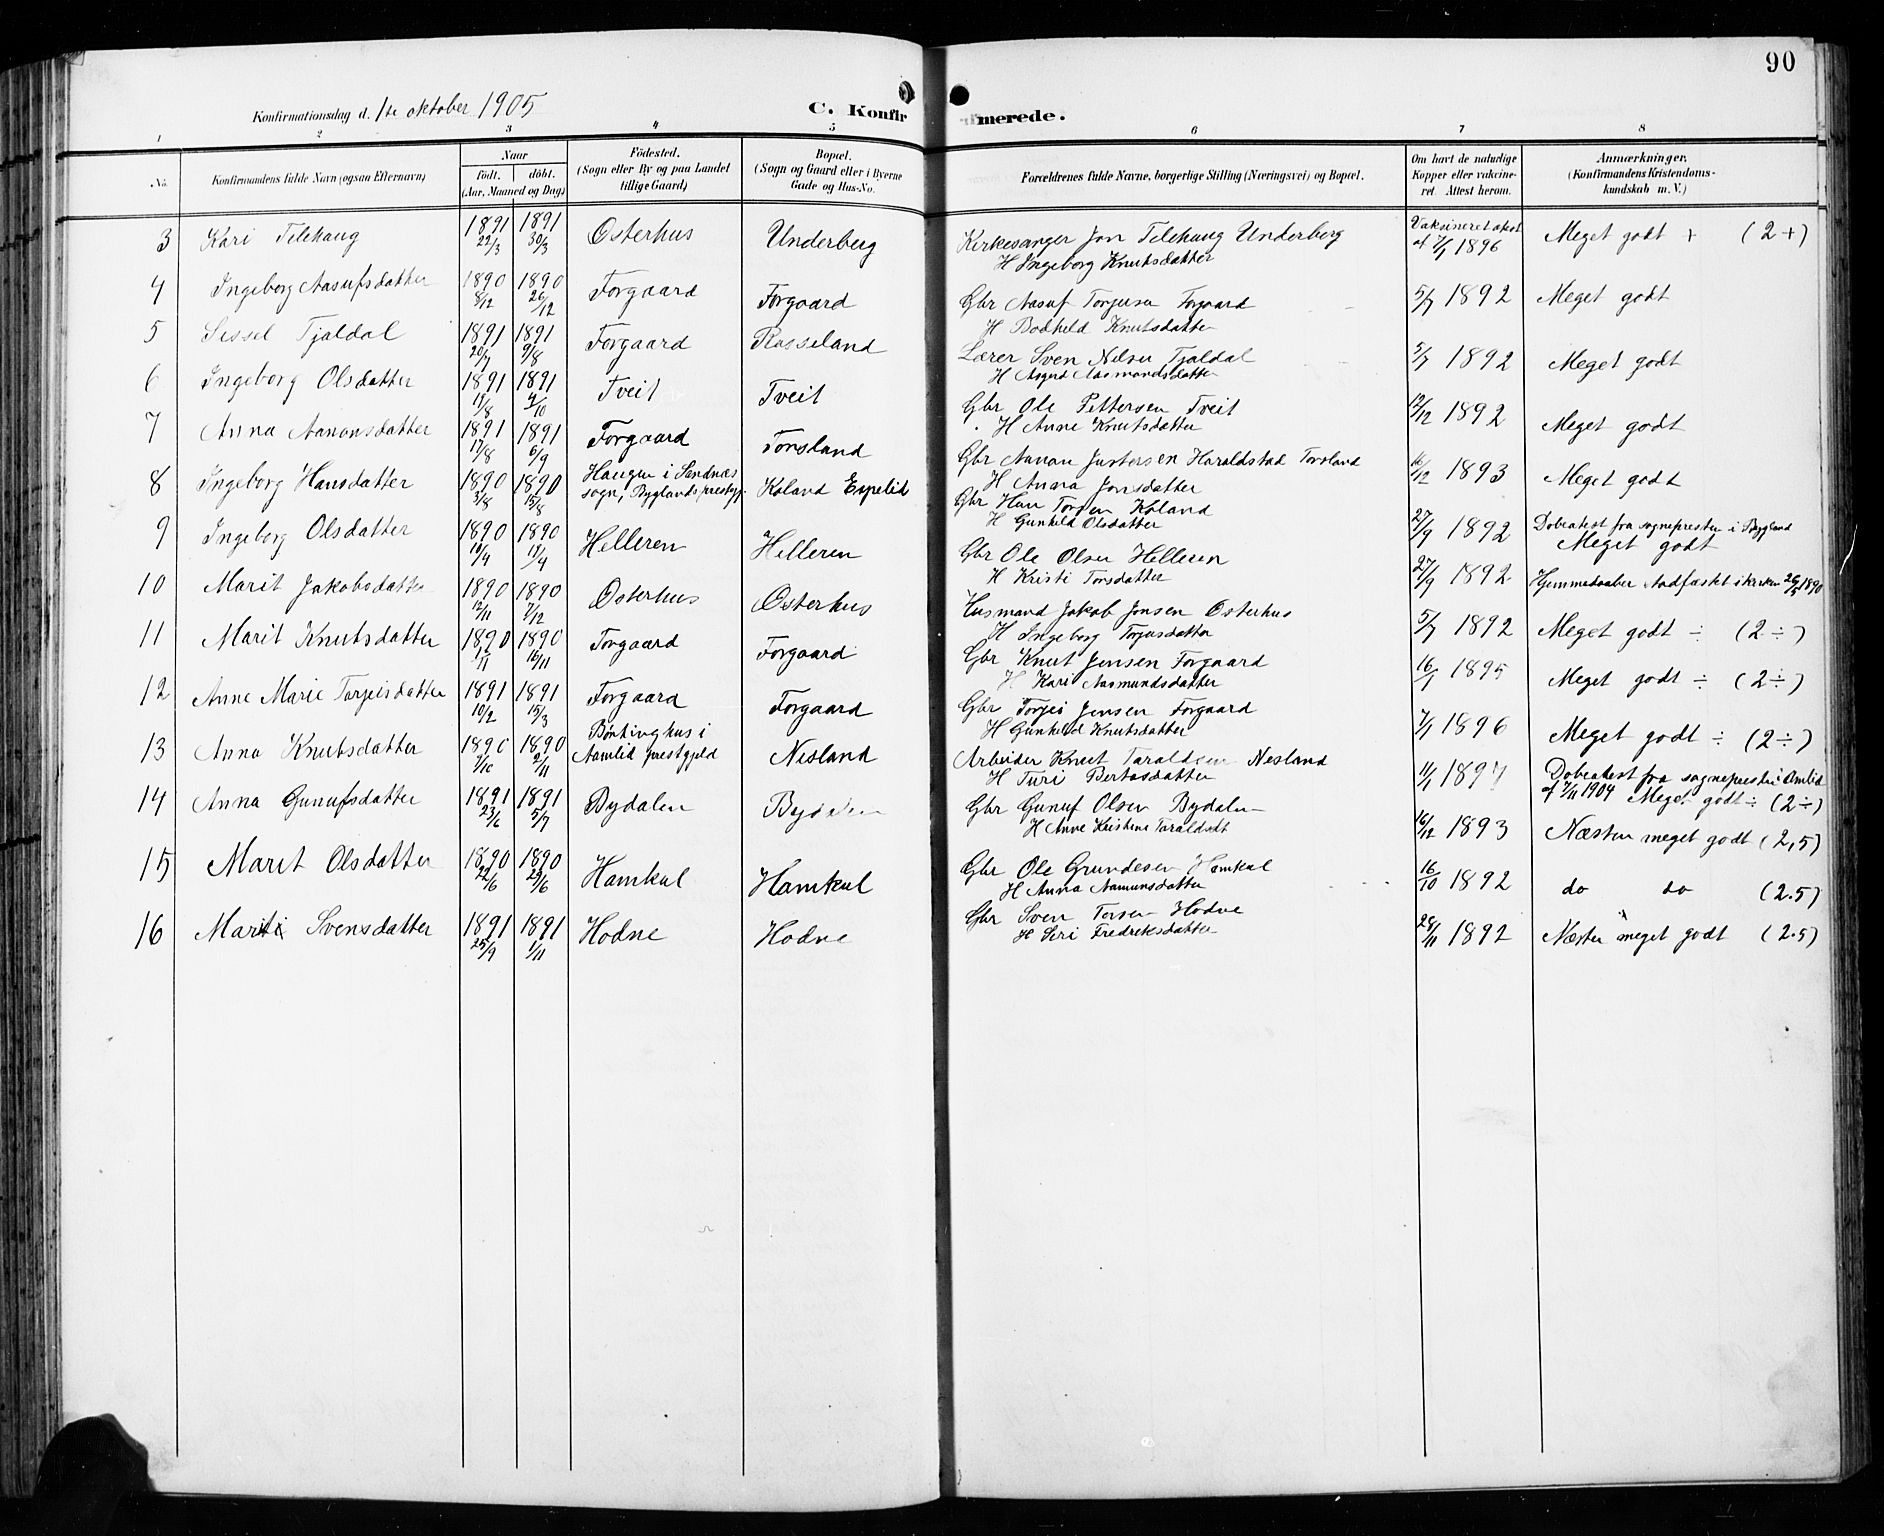 90
Konfirmationsdag d. 1ste oktober 1905 C. Konfirmerede.
1 2 3 4 5 6 7 8
No. Konfirmandens fulde Navn (ogsaa Efternavn) Naar födt. döbt. (Aar, Maaned og Dag) Födested. (Sogn eller By og paa Landet tillige Gaard) Bopæl. (Sogn og Gaard eller i Byerne Gade og Hus-No. Forældrenes fulde Navne, borgerlige Stilling (Næringsvei) og Bopæl. Om havt de naturlige Kopper eller vakcineret. Attest herom. Anmærkninger. (Konfirmandens Kristendomskundskab m. V.)
3 Kari Telehaug 1891 22/3 1891 30/3 Osterhus Underberg Kirkesanger Jon Telehaug Underberg Vaksineret attest af 7/1 1896 Meget godt + (2+)
H Ingeborg Knutsdatter
4 Ingeborg Aasufsdatter 1890 8/12 1890 26/12 Forgaard Forgaard Gbr Aasuf Torjusen Forgaard 5/7 1892 Meget godt
H Bodhild Knutsdatter
5 Sissel Tjaldal 1891 20/7 1891 9/8 Forgaard Rosseland Lærer Sven Nilsen Tjaldal 5/7 1892 Meget godt
H Asgerd Aasmundsdatter
6 Ingeborg Olsdatter 1891 1891 Tveit Tveit Gbr Ole Pettersen Tveit 12/12 1892 Meget godt
H Anne Knutsdatter
7 Anna Aanonsdatter 1891 17/8 1891 6/9 Forgaard Torsland Gbr Aanon Justersen Haraldstad Torsland 16/12 1893 Meget godt
H Anna Jonsdatter
8 Ingeborg Hansdatter 1890 3/8 1890 15/8 Haugen i Sandnæs sogn, Byglands prestgj. Koland Espelid Gbr Han Torjen Koland 27/9 1892 Dobeatest fra sogneprésten i Bygland
H Gunhild Olsdatter Meget godt
9 Ingeborg Olsdatter 1890 1890 Helleren Helleren Gbr Ole Olsen Helleren 27/9 1892 Hjemmedoaber stadfæstet i kirken 26/5 1890
H Kristi Torsdatter
10 Marit Jakobsdatter 1890 12/11 1890 7/12 Osterhus Osterhus Husmand Jakob Jonsen Osterhus 5/7 1892 Meget godt ÷ (2÷)
H Ingeborg Torjusdatter
11 Marit Knutsdatter 1890 1890 16/11 Forgaard Forgaard Gbr Knut Jensen Forgaard 16/1 1895 Meget godt ÷ (2÷)
H Kari Aasmundsdatter
12 Anne Marie Torjeisdatter 1891 10/2 1891 15/3 Forgaard Forgaard Gbr Torjei Jensen Forgaard 7/1 1896 Meget godt ÷ (2÷)
H Gunhild Knutsdatter
13 Anna Knutsdatter 1890 7/10 1890 2/11 Böntinghus i Aamlid prestgjeld Nesland Arbeider Knut Taraldsen Nesland 11/1 1897 Dobeatest fra sogneprest i Omlid
H Turi Bertosdatter af 7/11 1904 Meget godt ÷ (2÷)
14 Anna Gunufsdatter 1891 23/6 1891 5/7 Bydalen Bydalen Gbr Gunuf Olsen Bydalen 16/12 1893 Næsten meget godt (2,5)
H Anne Kristine Taraldsdt
15 Marit Olsdatter 1890 22/6 1890 29/6 Hamkul Hamkul Gbr Ole Grundesen Hamkul 16/10 1892 do do (2.5)
H Anna Aamunsdatter
16 Marit Svensdatter 1891 25/9 1891 1/11 Hodne Hodne Gbr Sven Torsen Hodne 28/11 1892 Næsten meget godt (2.5)
H Siri Fredriksdatter